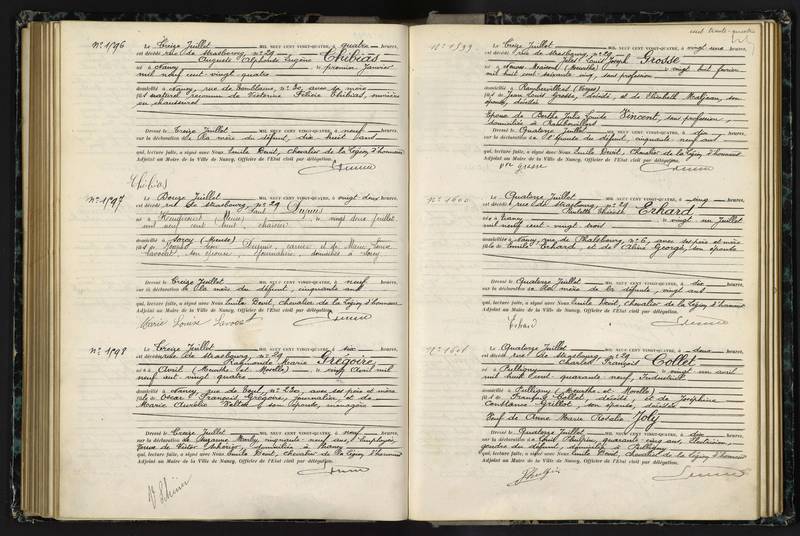 N° 1596
Le Treize Juillet MIL NEUF CENT VINGT-QUATRE, à quatre heures,
est décédé rue de Strasbourg, n° 29
Auguste Alphonse Eugène Thibias
né à Nancy le premier Janvier
mil neuf cent vingt quatre
domicilié à Nancy, rue de n° 30, avec sa mère
fils naturel reconnu de Victorine Thibias, ouvrière
en chaussures
Dressé le Treize Juillet MIL NEUF CENT VINGT-QUATRE, à neuf heures,
sur la déclaration de la mère du défunt, dix huit ans
qui, lecture faite, a signé avec Nous Emile Devit, chevalier de la Légion d'honneur
Adjoint au Maire de la Ville de Nancy, Officier de l'Etat civil par délégation.
Thibias
N° 1597
Le Douze Juillet MIL NEUF CENT VINGT-QUATRE, à vingt deux heures,
est décédé rue de Strasbourg, n° 29
Paul Dupuis
né à (Meuse) le vingt deux Juillet
mil neuf cent huit, carrier
domicilié à Sorcy (Meuse)
fils de Dupuis, carrier et de Marie Louise
Lavocat, son épouse, domiciliés à Sorcy
Dressé le Treize Juillet MIL NEUF CENT VINGT-QUATRE, à neuf heures,
sur la déclaration de la mère du défunt, cinquante ans
qui, lecture faite, a signé avec Nous Emile Devit, chevalier de la Légion d'honneur
Adjoint au Maire de la Ville de Nancy, Officier de l'Etat civil par délégation.
Marie Louise Lavocat
N° 1598
Le Treize Juillet MIL NEUF CENT VINGT-QUATRE, à six heures,
est décédée rue de Strasbourg, n° 29
Raymonde Marie Grégoire
née à Avril (Meurthe et Moselle) le vingt Avril mil
neuf cent vingt quatre
domiciliée à Nancy, rue de Toul, n° 220, avec ses père et mère
fille de Oscar François Grégoire, journalier et de
Marie Aurélie son épouse, ménagère
Dressé le Treize Juillet MIL NEUF CENT VINGT-QUATRE, à neuf heures,
sur la déclaration de Suzanne cinquante neuf ans, employée,
Veuve de Victor domiciliée à Nancy
qui, lecture faite, a signé avec Nous Emile Devit, chevalier de la Légion d'honneur
Adjoint au Maire de la Ville de Nancy, Officier de l'Etat civil par délégation.
cent trente-quatre
N° 1599
Le Treize Juillet MIL NEUF CENT VINGT-QUATRE, à vingt une heures,
est décédé rue de Strasbourg, n° 29
Jules Louis Joseph Grosse
né à (Meurthe) le vingt huit février
mil huit cent soixante cinq, sans profession
domicilié à Rambervillers (Vosges)
fils de Jean Louis Grosse, décédé, et de Elisabeth son
épouse, décédée
Epoux de Berthe Julie Vincent, sans profession,
domiciliée à Rambervillers
Dressé le Quatorze Juillet MIL NEUF CENT VINGT-QUATRE, à dix heures,
sur la déclaration de du défunt, cinquante neuf ans
qui, lecture faite, a signé avec Nous Emile Devit, Chevalier de la Légion d'honneur
Adjoint au Maire de la Ville de Nancy, Officier de l'Etat civil par délégation.
Vve Grosse
N° 1600
Le Quatorze Juillet MIL NEUF CENT VINGT-QUATRE, à cinq heures,
est décédée rue de Strasbourg, n° 29
Paulette Thérèse Erhard
née à Nancy le vingt un Juillet
mil neuf cent vingt trois
domiciliée à Nancy, rue de Phalsbourg, n° 6, avec ses père et mère
fille de Emile Erhard, et de Aline George, son épouse
Dressé le Quatorze Juillet MIL NEUF CENT VINGT-QUATRE, à dix heures,
sur la déclaration du père de la défunte, vingt ans
qui, lecture faite, a signé avec Nous Emile Devit, chevalier de la Légion d'honneur
Adjoint au Maire de la Ville de Nancy, Officier de l'Etat civil par délégation.
Erhard
N° 1601
Le Quatorze Juillet MIL NEUF CENT VINGT-QUATRE, à deux heures,
est décédé rue de Strasbourg, n° 29
Charles François Collet
né à Pulligny le vingt un avril
mil huit cent quarante neuf, Industriel
domicilié à Pulligny (Meurthe et Moselle)
fils de François Collet, décédé, et de Joséphine
Constance Grillot, son épouse, décédée
Veuf de Anne Marie Rosalie Joly
Dressé le Quatorze Juillet MIL NEUF CENT VINGT-QUATRE, à dix heures,
sur la déclaration de Louis quarante cinq ans,
gendre du défunt, domicilié à Pulligny
qui, lecture faite, a signé avec Nous Emile Devit, chevalier de la Légion d'honneur
Adjoint au Maire de la Ville de Nancy, Officier de l'Etat civil par délégation.